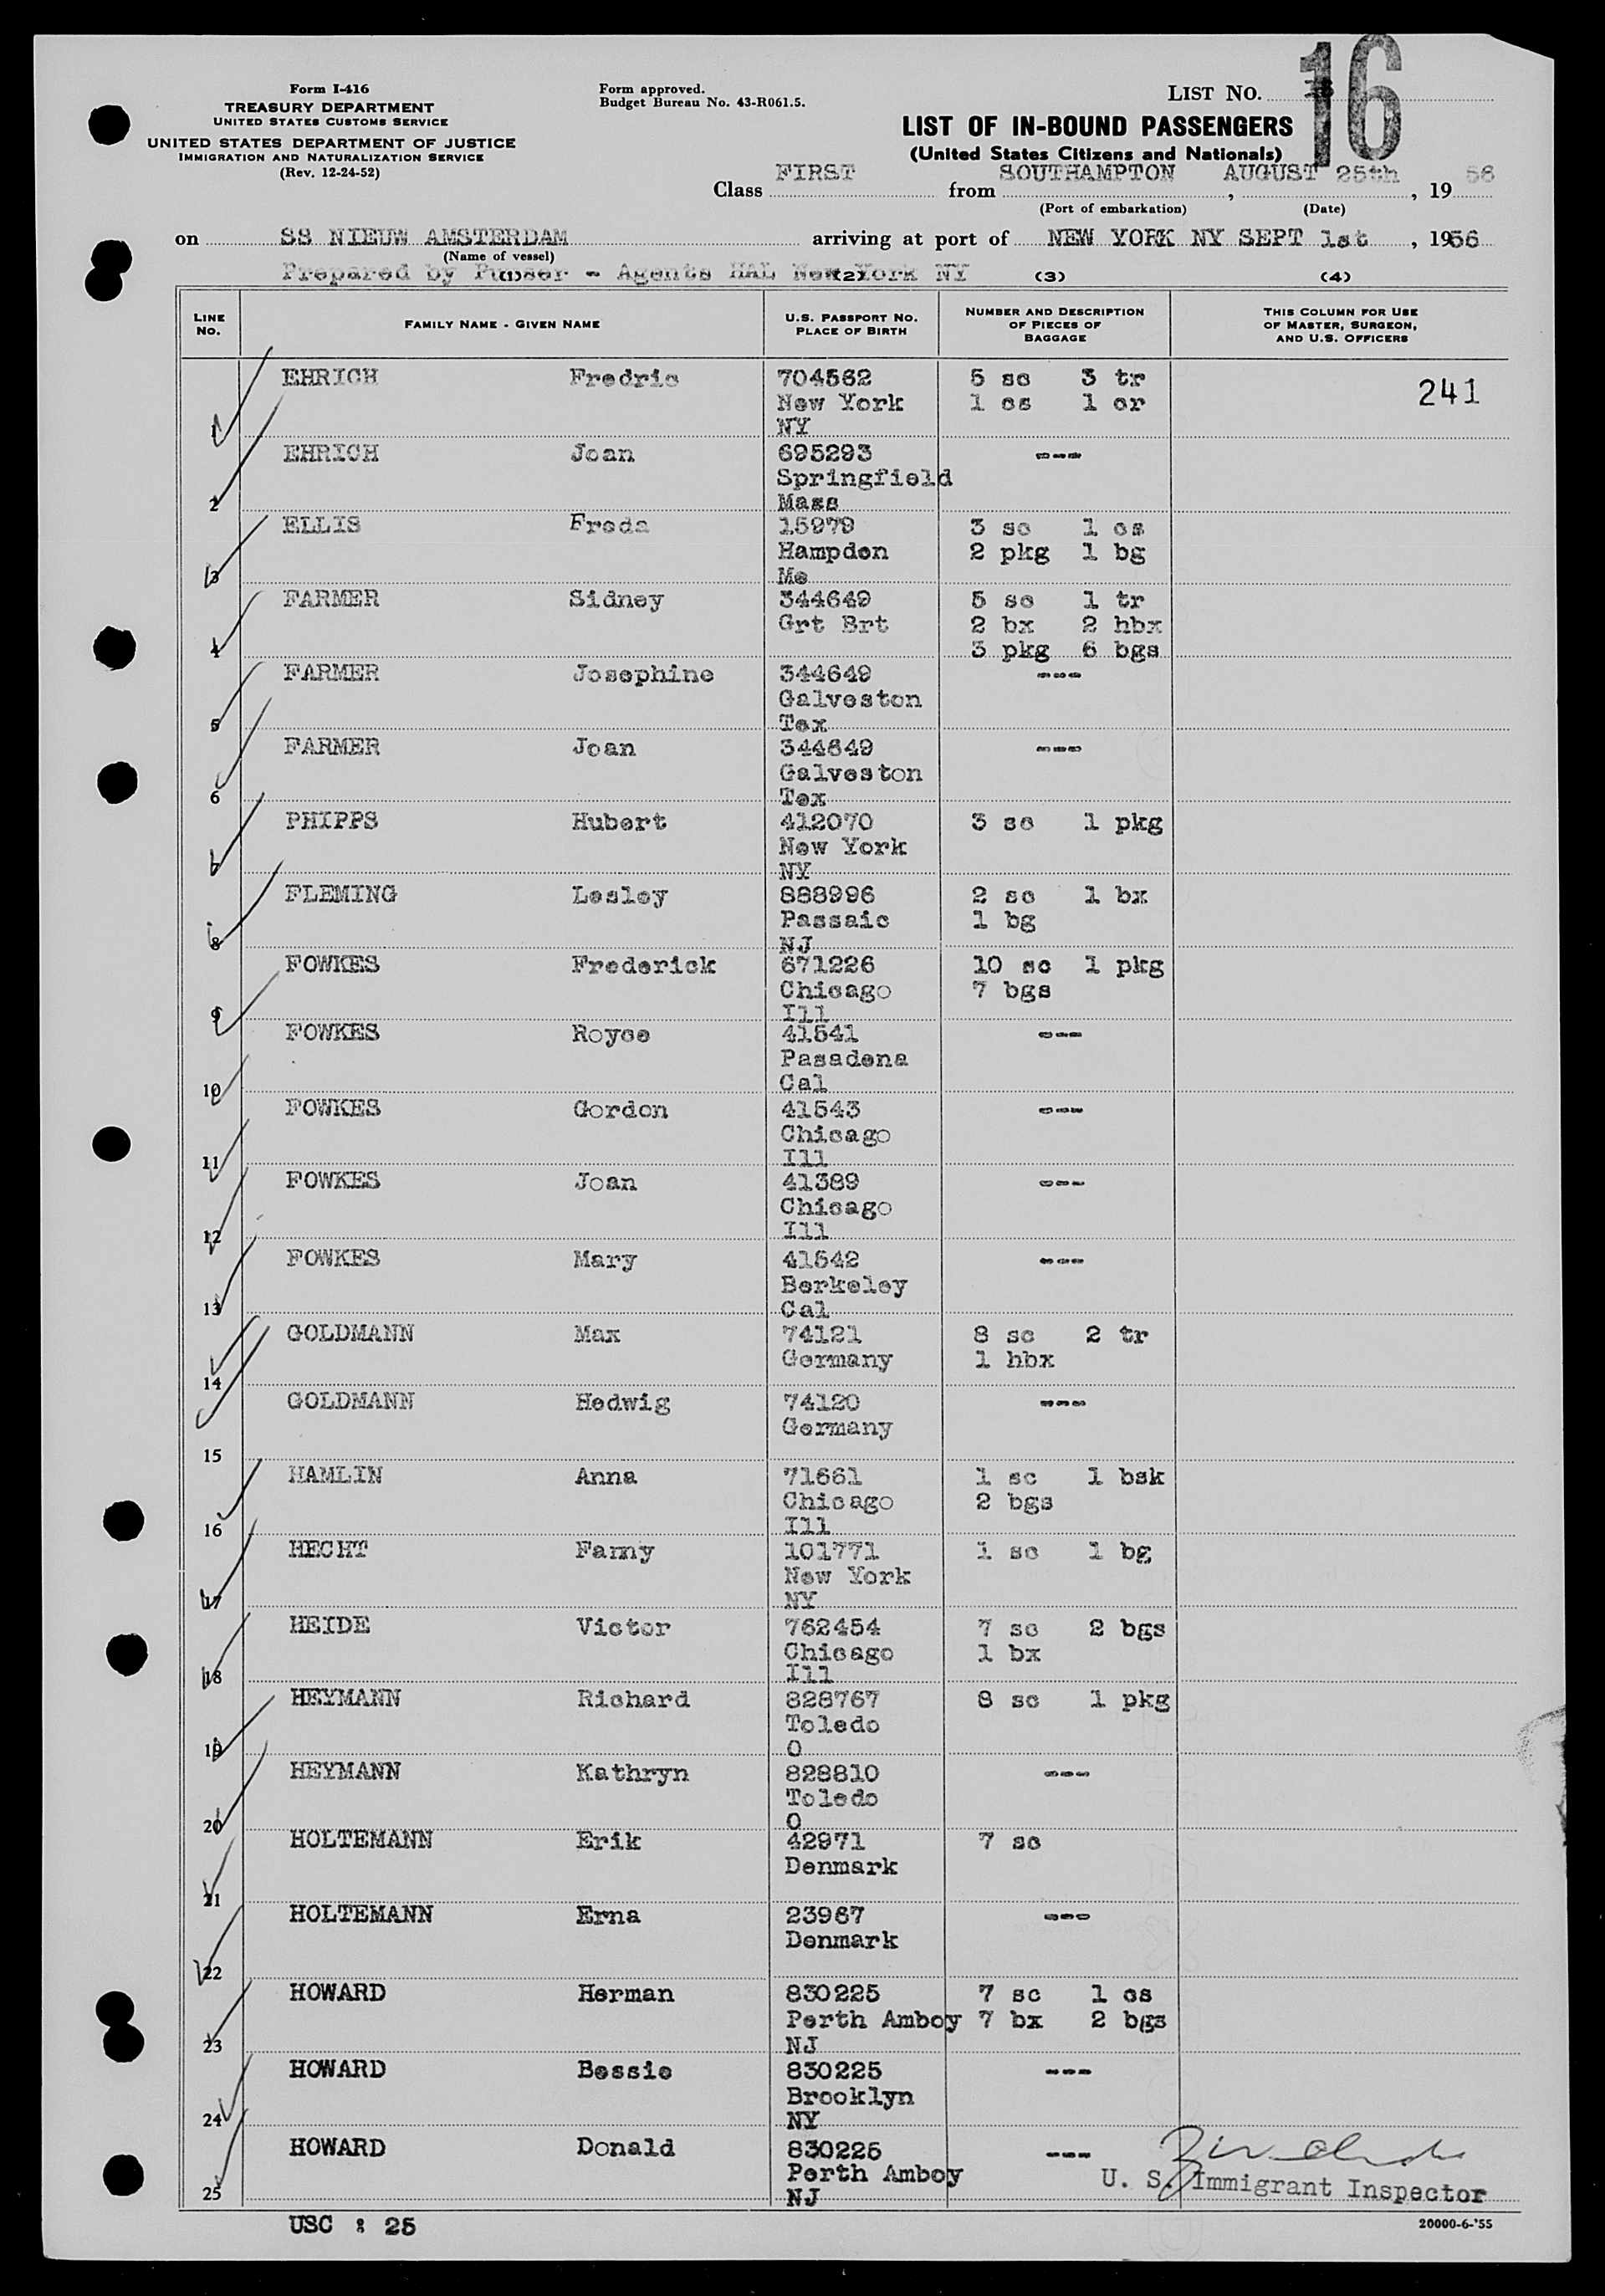 Form I-416
TREASURY DEPARTMENT
UNITED STATES CUSTOMS SERVICE
UNITED STATES DEPARTMENT OF JUSTICE
IMMIGRATION AND NATURALIZATION SERVICE
(Rev. 12-24-52)
Form approved.
Budget Bureau No. 43-R061.5.
LIST NO. 16
LIST OF IN-BOUND PASSENGERS
(United States Citizens and Nationals)
Class FIRST from SOUTHAMPTON, AUGUST 25th, 19 56
(Port of embarkation) (Date)
on SS NIEUW AMSTERDAM arriving at port of NEW YORK NY SEPT 1st, 1956
(Name of vessel)
Prepared by Purser - Agents HAL New York NY
(1) (2) (3) (4)
LINE NO. FAMILY NAME - GIVEN NAME U.S. PASSPORT NO. PLACE OF BIRTH NUMBER AND DESCRIPTION OF PIECES OF BAGGAGE THIS COLUMN FOR USE OF MASTER, SURGEON, AND U.S. OFFICERS
EHRICH Fredric 704562 5 sc 3 tr 241
New York 1 cs 1 cr
1 NY
EHRICH Joan 695293 ---
Springfield
2 Mass
ELLIS Freda 15979 3 sc 1 cs
Hampden 2 pkg 1 bg
3 Me
FARMER Sidney 344649 5 sc 1 tr
Grt Brt 2 bx 2 hbx
4 3 pkg 6 bgs
FARMER Josephine 344649 ---
Galveston
5 Tex
FARMER Joan 344649 ---
Galveston
6 Tex
PHIPPS Hubert 412070 3 sc 1 pkg
New York
7 NY
FLEMING Lesley 888996 2 sc 1 bx
Passaic 1 bg
8 NJ
FOWKES Frederick 671226 10 sc 1 pkg
Chicago 7 bgs
9 Ill
FOWKES Royce 41541 ---
Pasadena
10 Cal
FOWKES Gordon 41543 ---
Chicago
11 Ill
FOWKES Joan 41389 ---
Chicago
12 Ill
FOWKES Mary 41542 ---
Berkeley
13 Cal
GOLDMANN Max 74121 8 sc 2 tr
Germany 1 hbx
14
GOLDMANN Hedwig 74120 ---
Germany
15
HAMLIN Anna 71661 1 sc 1 bsk
Chicago 2 bgs
16 Ill
HECHT Fanny 101771 1 sc 1 bg
New York
17 NY
HEIDE Victor 762454 7 sc 2 bgs
Chicago 1 bx
18 Ill
HEYMANN Richard 828767 8 sc 1 pkg
Toledo
19 O
HEYMANN Kathryn 828810 ---
Toledo
20 O
HOLTEMANN Erik 42971 7 sc
Denmark
21
HOLTEMANN Erna 23967 ---
Denmark
22
HOWARD Herman 830225 7 sc 1 cs
Perth Amboy 7 bx 2 bgs
23 NJ
HOWARD Bessie 830225 ---
Brooklyn
24 NY
HOWARD Donald 830225 ---
Perth Amboy U. S. Immigrant Inspector
25 NJ
USC : 25 20000-6-'55